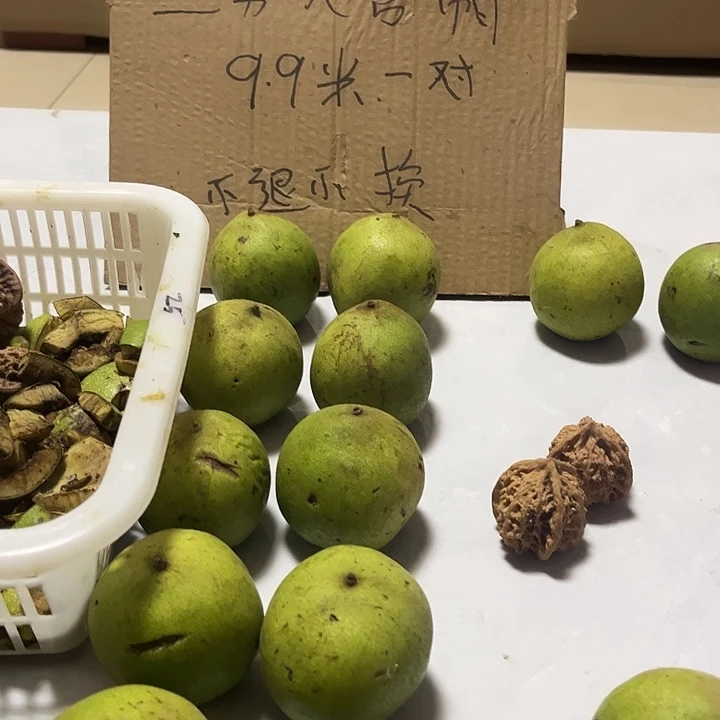 官帽
9.9米一对
不退不换